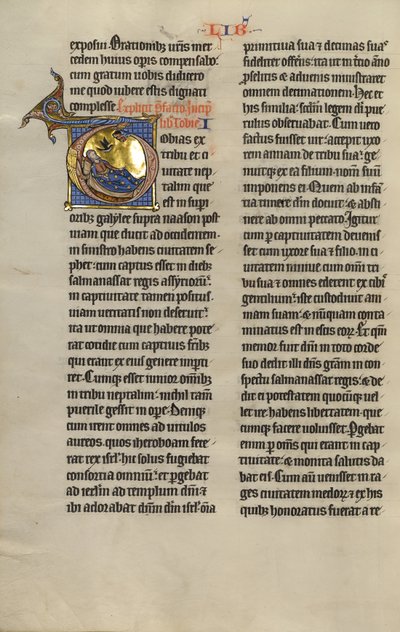 LIB
exposui. Orationibꝫ ur̄is mer
cedem huius opis compensabo.
cum gratum uobis didicero
me quod iubere estis dignati
complesse. Explicit p̄fatio. Incip̄
lib̄ Tobie. I
Tobias ex
tribu et ci
uitate nep
talim que
est in supi
oribꝫ galylee supra naason post
uiam que ducit ad occidentem.
in sinistro habens ciuitatem se
phet. cum captus esset in diebꝫ
salmanassar regis assyrioꝝ.
in captiuitate tamen positus.
uiam ueritatis non deseruit.
ita ut omnia que habere pote
rat cotidie cum captiuis fr̄ibꝫ
qui erant ex eius genere imꝑti
ret. Cumqꝫ esset iunior omībꝫ
in tribu neptalim. nichil tam̄
puerile gessit in oꝑe. Deniqꝫ
cum irent omnes ad uitulos
aureos. quos iheroboam fece
rat rex isrl̄. hic solus fugiebat
consortia omniū. et ꝑgebat
ad ierl̄m ad templum dn̄i. ⁊
ibi adorabat dn̄m dm̄ isrl̄. oīa
primitiua sua ⁊ decimas suas
fideliter offerēs. ita ut in t̄cio āno
ꝓselitis ⁊ aduenis ministraret
omnem decimationem. Hec et
his similia. scd̄m legem dī pue
rulus obseruabat. Cum uero
factus fuisset uir. accepit uxo
rem annam de tribu sua. ge
nuitqꝫ ex ea filium. nom̄ suū
imponens ei. Quem ab infā
tia timere dm̄ docuit. ⁊ absti
nere ab omni peccato. Igitur
cum ꝑ captiuitatem deuenis
set cum uxore sua ⁊ filio. in ci
uitatem niniue cum omī tri
bu sua. ⁊ omnes ederent ex cibis
gentilium. iste custodiuit ani
mam suam. ⁊ nūquam conta
minatus est in escis eoꝝ. Et qm̄
memor fuit dn̄i in toto corde
suo dedit illi dn̄s grām in con
spectu salmanassar regis. ⁊ de
dit ei potestatem quocūqꝫ uel
let ire. habens libertatem. que
cumqꝫ facere uoluisset. Ꝑgebat
enim ꝑ oms̄ qui erant in cap
tiuitate. ⁊ monita salutis da
bat eis. Cum aūt uenisset in ra
ges ciuitatem medoꝝ. ⁊ ex his
quibꝫ honoratus fuerat a re